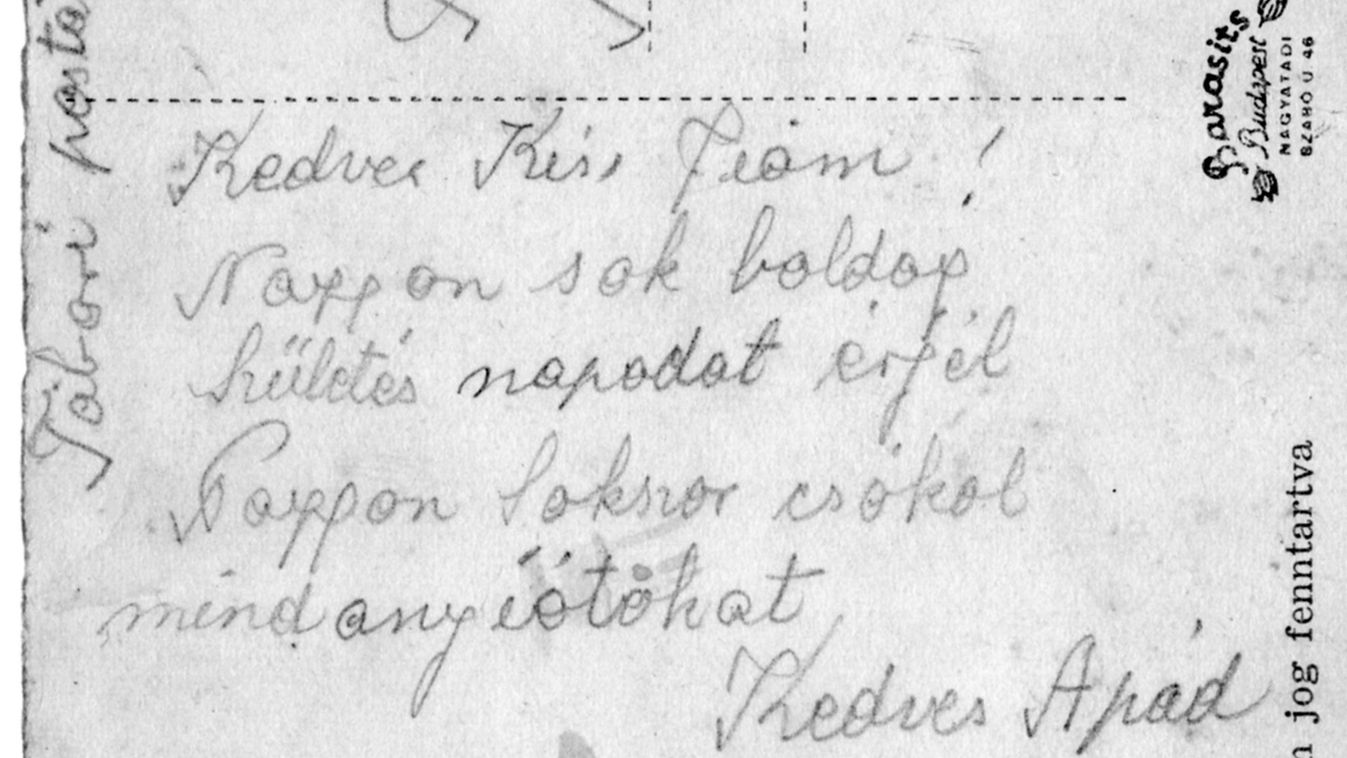 Tábori posta
Kedves Kiss Fiam !
Nagyon sok boldog
születés napodat érjél
Nagyon sokszor csókol
mindanyiótökat
Kedves Apád
Barasits
Budapest
NAGYATÁDI
SZABÓ U 46
jog fenntartva